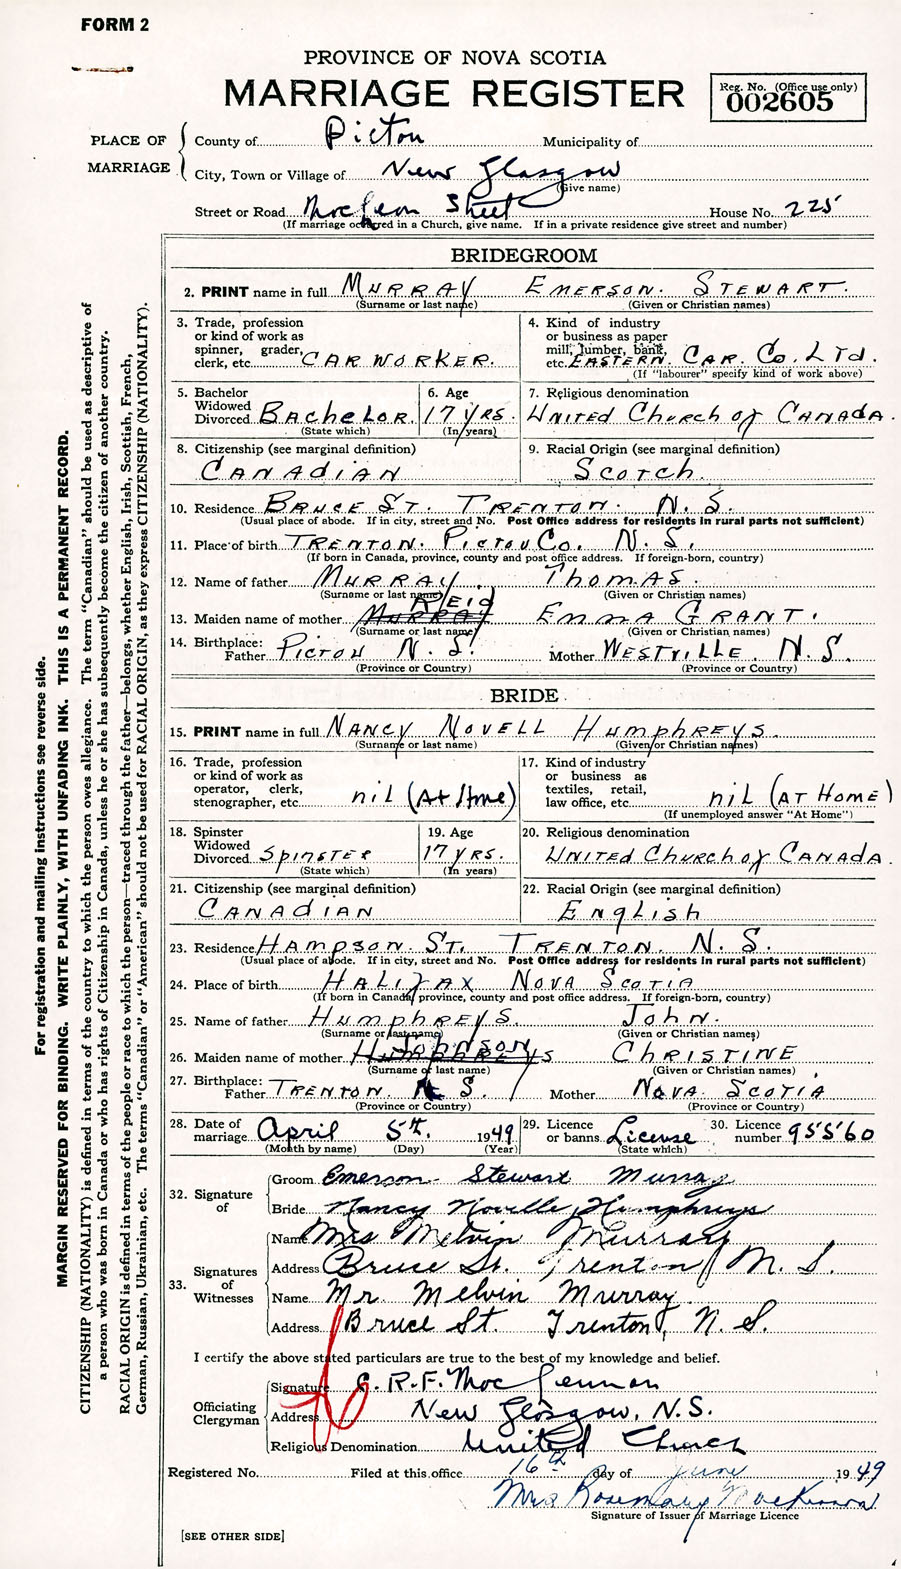 FORM 2
PROVINCE OF NOVA SCOTIA
MARRIAGE REGISTER
Reg. No. (Office use only)
002605
PLACE OF MARRIAGE
County of Pictou Municipality of
City, Town or Village of New Glasgow
(Give name)
Street or Road MacLean Street House No. 225
(If marriage occurred in a Church, give name. If in a private residence give street and number)
BRIDEGROOM
2. PRINT name in full MURRAY EMERSON. STEWART.
(Surname or last name) (Given or Christian names)
3. Trade, profession
or kind of work as
spinner, grader,
clerk, etc. CAR WORKER.
4. Kind of industry
or business as paper
mill, lumber, bank,
etc. EASTERN. CAR. Co. LTd.
(If "labourer" specify kind of work above)
5. Bachelor
Widowed
Divorced BACHELOR.
(State which)
6. Age
17 YRS.
(In years)
7. Religious denomination
UNITED CHURCH of CANADA.
8. Citizenship (see marginal definition)
CANADIAN
9. Racial Origin (see marginal definition)
SCOTCH.
10. Residence BRUCE ST. TRENTON. N. S.
(Usual place of abode. If in city, street and No. Post Office address for residents in rural parts not sufficient)
11. Place of birth TRENTON. PICTOU Co. N. S.
(If born in Canada, province, county and post office address. If foreign-born, country)
12. Name of father MURRAY. THOMAS.
(Surname or last name) (Given or Christian names)
REID
13. Maiden name of mother MURRAY EMMA GRANT.
(Surname or last name) (Given or Christian names)
14. Birthplace:
Father PICTOU N. S. Mother WESTVILLE. N. S.
(Province or Country) (Province or Country)
BRIDE
15. PRINT name in full NANCY NOVELL HUMPHREYS.
(Surname or last name) (Given or Christian names)
16. Trade, profession
or kind of work as
operator, clerk,
stenographer, etc. nil (At Home)
17. Kind of industry
or business as
textiles, retail,
law office, etc. nil (AT HOME)
(If unemployed answer "At Home")
18. Spinster
Widowed
Divorced SPINSTER
(State which)
19. Age
17 YRS.
(In years)
20. Religious denomination
UNITED CHURCH of CANADA.
21. Citizenship (see marginal definition)
CANADIAN
22. Racial Origin (see marginal definition)
ENGLISH
23. Residence HAMPSON. ST. TRENTON. N. S.
(Usual place of abode. If in city, street and No. Post Office address for residents in rural parts not sufficient)
24. Place of birth HALIFAX NOVA SCOTIA
(If born in Canada, province, county and post office address. If foreign-born, country)
25. Name of father HUMPHREYS. JOHN.
(Surname or last name) (Given or Christian names)
JOHNSON
26. Maiden name of mother HUMPHREYS CHRISTINE
(Surname or last name) (Given or Christian names)
27. Birthplace:
Father TRENTON. N. S. Mother NOVA. SCOTIA
(Province or Country) (Province or Country)
28. Date of
marriage April 5th. 1949
(Month by name) (Day) (Year)
29. Licence
or banns License
(State which)
30. Licence
number 95560
32. Signature of
Groom Emerson Stewart Murray
Bride Nancy Novelle Humphreys
33. Signatures of Witnesses
Name Mrs Melvin Murray
Address Bruce St. Trenton N. S.
Name Mr. Melvin Murray
Address Bruce St. Trenton, N. S.
I certify the above stated particulars are true to the best of my knowledge and belief.
Officiating Clergyman
Signature R. F. MacLennan
Address New Glasgow, N.S.
Religious Denomination United Church
Registered No. Filed at this office 16th day of June 1949
Mrs Rosemary MacKinnon
Signature of Issuer of Marriage Licence
[SEE OTHER SIDE]
For registration and mailing instructions see reverse side.
MARGIN RESERVED FOR BINDING. WRITE PLAINLY, WITH UNFADING INK. THIS IS A PERMANENT RECORD.
CITIZENSHIP (NATIONALITY) is defined in terms of the country to which the person owes allegiance. The term "Canadian" should be used as descriptive of
a person who was born in Canada or who has rights of Citizenship in Canada, unless he or she has subsequently become the citizen of another country.
RACIAL ORIGIN is defined in terms of the people or race to which the person—traced through the father—belongs, whether English, Irish, Scottish, French,
German, Russian, Ukrainian, etc. The terms "Canadian" or "American" should not be used for RACIAL ORIGIN, as they express CITIZENSHIP (NATIONALITY).